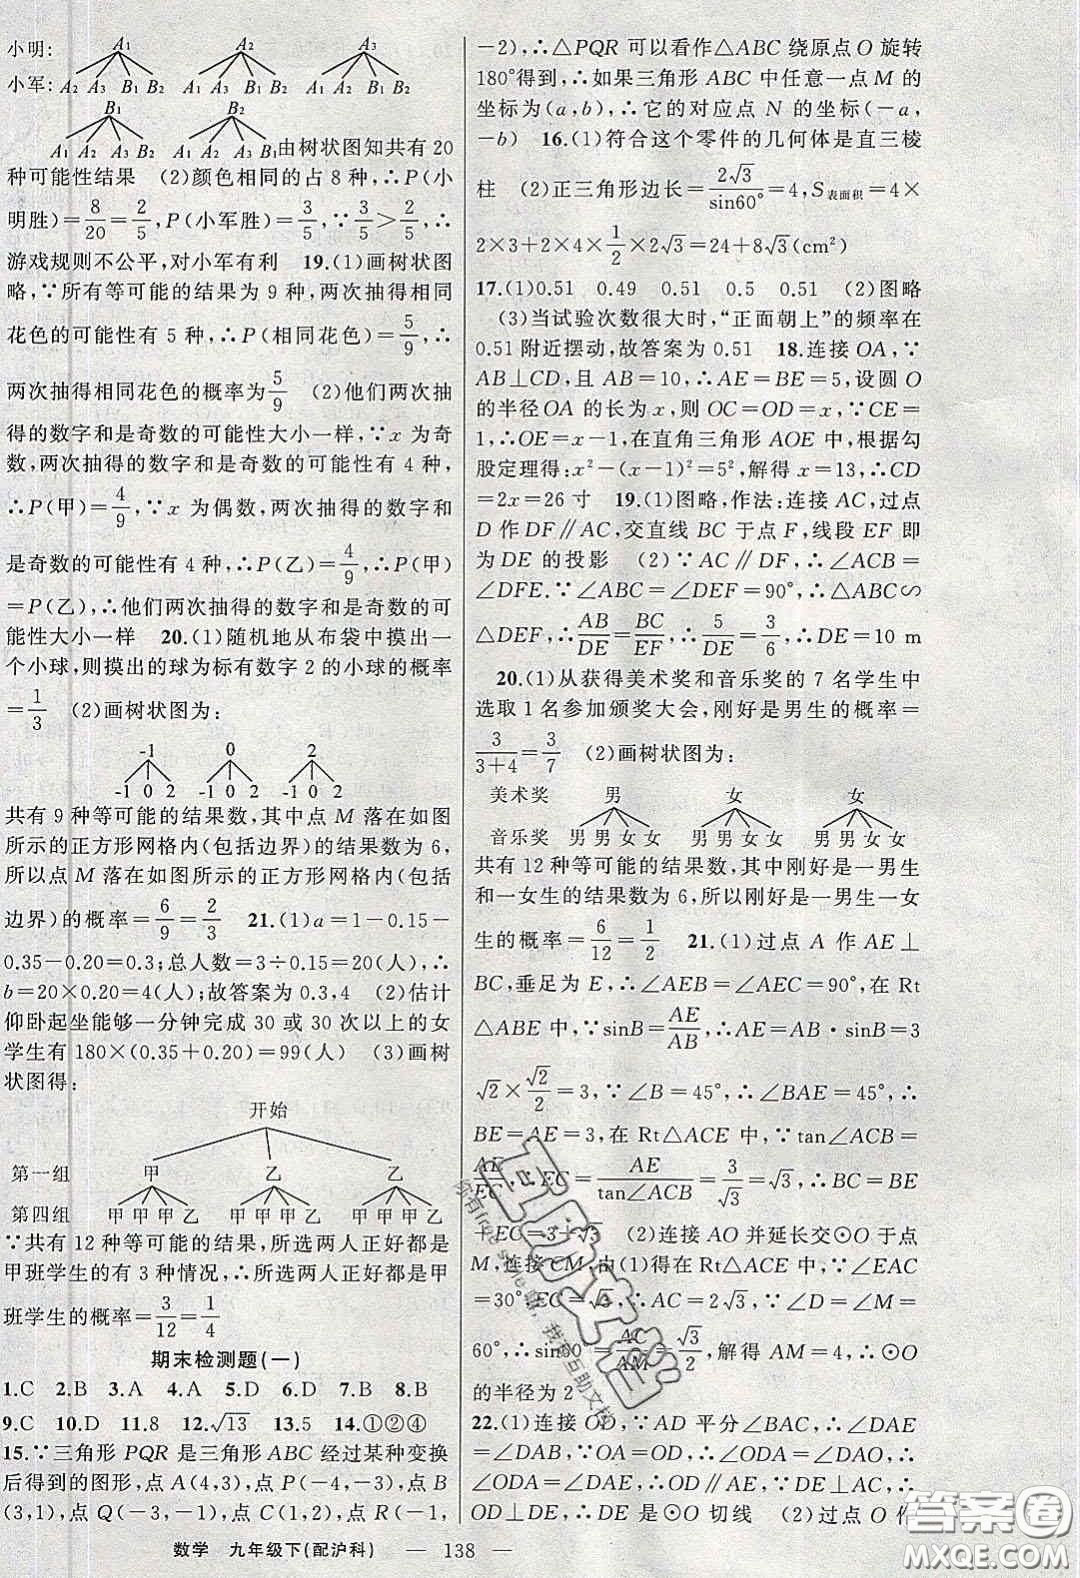 小明: A₁ A₂ A₃
小军: A₂ A₃ B₁ B₂ A₁ A₃ B₁ B₂ A₁ A₂ B₁ B₂
B₁ B₂
A₁ A₂ A₃ B₂ A₁ A₂ A₃ B₁ 由树状图知共有20
种可能性结果 (2)颜色相同的占8种,∴P(小
明胜)=8/20=2/5,P(小军胜)=3/5,∵3/5>2/5,∴
游戏规则不公平,对小军有利 19.(1)画树状图
略,∵所有等可能的结果为9种,两次抽得相同
花色的可能性有5种,∴P(相同花色)=5/9,∴
两次抽得相同花色的概率为5/9 (2)他们两次抽
得的数字和是奇数的可能性大小一样,∵x为奇
数,两次抽得的数字和是奇数的可能性有4种,
∴P(甲)=4/9,∵x为偶数,两次抽得的数字和
是奇数的可能性有4种,∴P(乙)=4/9,∴P(甲)
=P(乙),∴他们两次抽得的数字和是奇数的可
能性大小一样 20.(1)随机地从布袋中摸出一
个小球,则摸出的球为标有数字2的小球的概率
=1/3 (2)画树状图为:
-1 0 2
-1 0 2 -1 0 2 -1 0 2
共有9种等可能的结果数,其中点M落在如图
所示的正方形网格内(包括边界)的结果数为6,
所以点M落在如图所示的正方形网格内(包括
边界)的概率=6/9=2/3 21.(1)a=1-0.15-
0.35-0.20=0.3;总人数=3÷0.15=20(人),∴
b=20×0.20=4(人);故答案为0.3,4 (2)估计
仰卧起坐能够一分钟完成30或30次以上的女
学生有180×(0.35+0.20)=99(人) (3)画树
状图得:
开始
第一组 甲 乙 乙
第四组 甲 甲 甲 乙 甲 甲 甲 乙 甲 甲 甲 乙
∵共有12种等可能的结果,所选两人正好都是
甲班学生的有3种情况,∴所选两人正好都是甲
班学生的概率=3/12=1/4
期末检测题(一)
1.C 2.B 3.A 4.A 5.D 6.D 7.B 8.B
9.C 10.D 11.8 12.√13 13.5 14.①②④
15.∵三角形PQR是三角形ABC经过某种变换
后得到的图形,点A(4,3),点P(-4,-3),点B
(3,1),点Q(-3,-1),点C(1,2),点R(-1,
-2),∴△PQR可以看作△ABC绕原点O旋转
180°得到,∴如果三角形ABC中任意一点M的
坐标为(a,b),∴它的对应点N的坐标(-a,
-b) 16.(1)符合这个零件的几何体是直三棱
柱 (2)正三角形边长=2√3/sin60°=4,S表面积=4×
2×3+2×4×1/2×2√3=24+8√3(cm²)
17.(1)0.51 0.49 0.51 0.5 0.51 (2)图略
(3)当试验次数很大时,“正面朝上”的频率在
0.51附近摆动,故答案为0.51 18.连接OA,∵
AB⊥CD,且AB=10,∴AE=BE=5,设圆O
的半径OA的长为x,则OC=OD=x,∵CE=
1,∴OE=x-1,在直角三角形AOE中,根据勾
股定理得:x²-(x-1)²=5²,解得x=13,∴CD
=2x=26寸 19.(1)图略,作法:连接AC,过点
D作DF∥AC,交直线BC于点F,线段EF即
为DE的投影 (2)∵AC∥DF,∴∠ACB=
∠DFE.∵∠ABC=∠DEF=90°,∴△ABC∽
△DEF,∴AB/DE=BC/EF,∴5/DE=3/6,∴DE=10 m
20.(1)从获得美术奖和音乐奖的7名学生中
选取1名参加颁奖大会,刚好是男生的概率=
3/(3+4)=3/7 (2)画树状图为:
美术奖 男 女 女
音乐奖 男 男 女 女 男 男 女 女 男 男 女 女
共有12种等可能的结果数,其中刚好是一男生
和一女生的结果数为6,所以刚好是一男生一女
生的概率=6/12=1/2 21.(1)过点A作AE⊥
BC,垂足为E,∴∠AEB=∠AEC=90°,在Rt
△ABE中,∵sinB=AE/AB,∴AE=AB·sinB=3
√2×√2/2=3,∵∠B=45°,∴∠BAE=45°,∴
BE=AE=3,在Rt△ACE中,∵tan∠ACB=
AE/EC,∴EC=AE/tan∠ACB=3/√3=√3,∴BC=BE
+EC=3+√3 (2)连接AO并延长交⊙O于点
M,连接CM,由(1)得在Rt△ACE中,∵∠EAC
=30°,EC=√3,∴AC=2√3,∵∠D=∠M=
60°,∴sin60°=AC/AM=√3/2,解得AM=4,∴⊙O
的半径为2
22.(1)连接OD,∵AD平分∠BAC,∴∠DAE
=∠DAB,∵OA=OD,∴∠ODA=∠DAO,∴
∠ODA=∠DAE,∴OD∥AE,∵DE⊥AC,∴
OD⊥DE,∴DE是⊙O切线 (2)过点O作
数学 九年级下(配沪科) — 138 —
答案圈